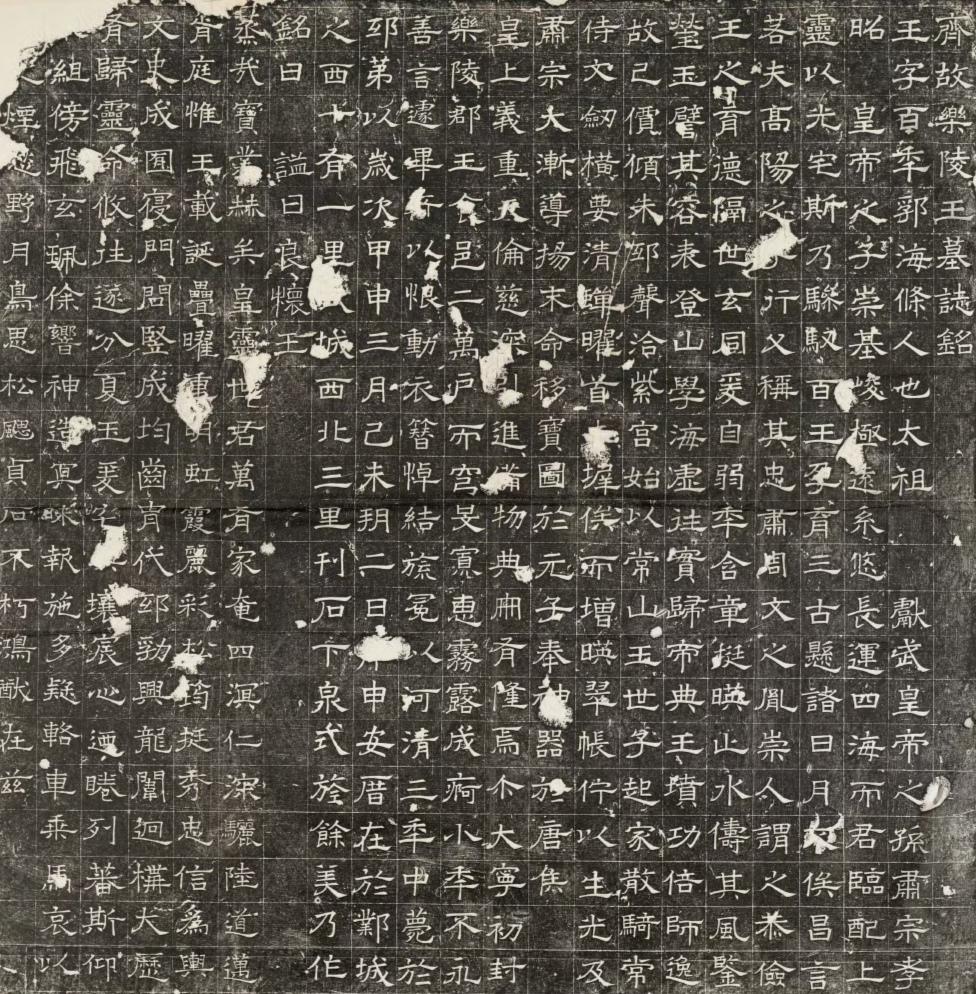 齊故樂陵王墓誌銘
王字百年郭海條人也太祖 獻武皇帝之孫肅宗孝
昭 皇帝之子崇基峻極遠系悠長運四海而君臨配上
靈以光宅斯乃騄馭百王孕育三古懸諸日月文俟昌言
若夫高陽之子行父稱其忠肅周文之胤崇人謂之恭儉
王之育德隔世玄同爰自弱年含章挺暎止水儔其風鑒
瑩玉譬其容表登山學海虛往實歸帝典王墳功倍師逸
故已價傾朱邸聲洽紫宮始以常山王世子起家散騎常
侍文劒橫要清暉曜首墀俟而增暎翠帳佇以生光及
肅宗大漸導揚末命移寶圖於元子奉神器於唐侯
皇上義重天倫慈深引進備物典冊有隆焉尒大寧初封
樂陵郡王食邑二萬戶而穹旻寡惠霧露成痾小年不永
善言遽畢奄以恨動衣簪悼結旒冕以河清三年中薨於
邸第以歲次甲申三月己未朔二日申安厝在於鄴城
之西十有一里城西北三里刊石下泉式旌餘美乃作
銘曰 謚曰良懷王
蒸哉寶業赫矣皇靈世君萬有家奄四溟仁深驪陸道邁
胥庭惟王載誕疊曜重明虹霞麗彩松筠挺秀忠信為輿
文史成囿寢門問豎成均齒胄代邸勃興龍闈迴構犬歷
有歸靈命攸往遂分夏玉爰壤宸心迺睠列蕃斯仰
組傍飛玄珮徐響神造冥昧報施多疑輅車乘馬哀以
煙悲野月鳥思松颸貞石不朽鴻猷在茲